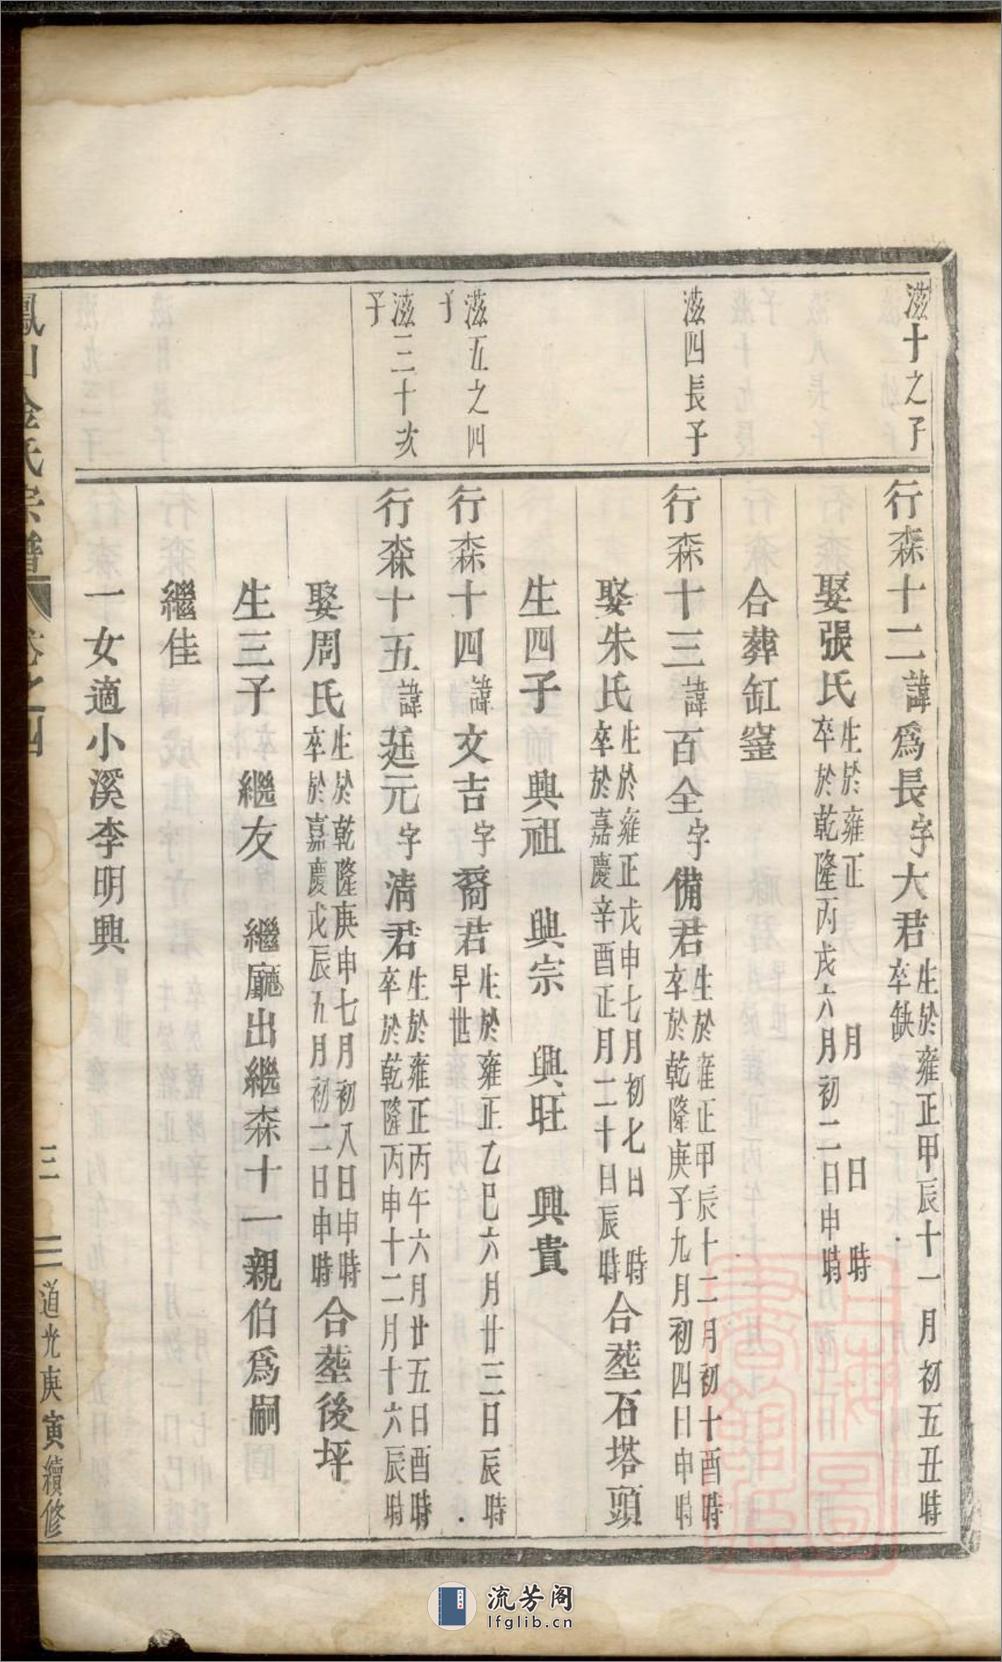 滋十之子
行森十二諱爲長字大君生於雍正甲辰十一月初五丑時
卒缺
娶張氏生於雍正 月 日 時
卒於乾隆丙戌六月初二日申時
合葬缸窰
滋四長子
行森十三諱百全字備君生於雍正甲辰十二月初十酉時
卒於乾隆庚子九月初四日申時
娶朱氏生於雍正戊申七月初七日 時
卒於嘉慶辛酉正月二十日辰時
合塟石塔頭
生四子 興祖 興宗 興旺 興貴
滋五之四
子
行森十四諱文吉字裔君生於雍正乙巳六月廿三日辰時
早世
滋三十次
子
行森十五諱廷元字清君生於雍正丙午六月廿五日酉時
卒於乾隆丙申十二月十六辰時
娶周氏生於乾隆庚申七月初八日申時
卒於嘉慶戊辰五月初二日申時
合塟後坪
生三子 繼友 繼廳出繼森十一親伯爲嗣
繼佳
一女適小溪李明興
鳳山金氏宗譜 卷之四 三 三 道光庚寅續修
流芳阁
lfglib.cn